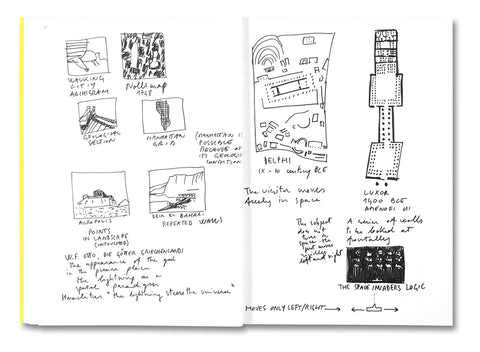 WALKING
CITY
ARCHIGRAM
Nolli map
1748
GEOLOGICAL
SECTION
MANHATTAN
GRID
MANHATTAN IS
POSSIBLE
BECAUSE OF
ITS GEOLOGIC
CONDITION
ACROPOLIS
POINTS
IN LANDSCAPE
DEIR EL BAHARI
REPEATED WALLS
W.F. OTTO, DIE GÖTTER GRIECHENLANDS
the appearance of the god
in the precise place
the lightning as a
spatial paradigm
Heraclitus "the lightning steers the universe"
DELPHI
CENTURY BCE
The visitor moves
freely in space
The subject
does not
turn in
space. He
just moves
left and right
LUXOR
1400 BCE
AMENOFI III
A series of walls
to be looked at
frontally
THE SPACE INVADERS LOGIC
MOVES ONLY LEFT/RIGHT